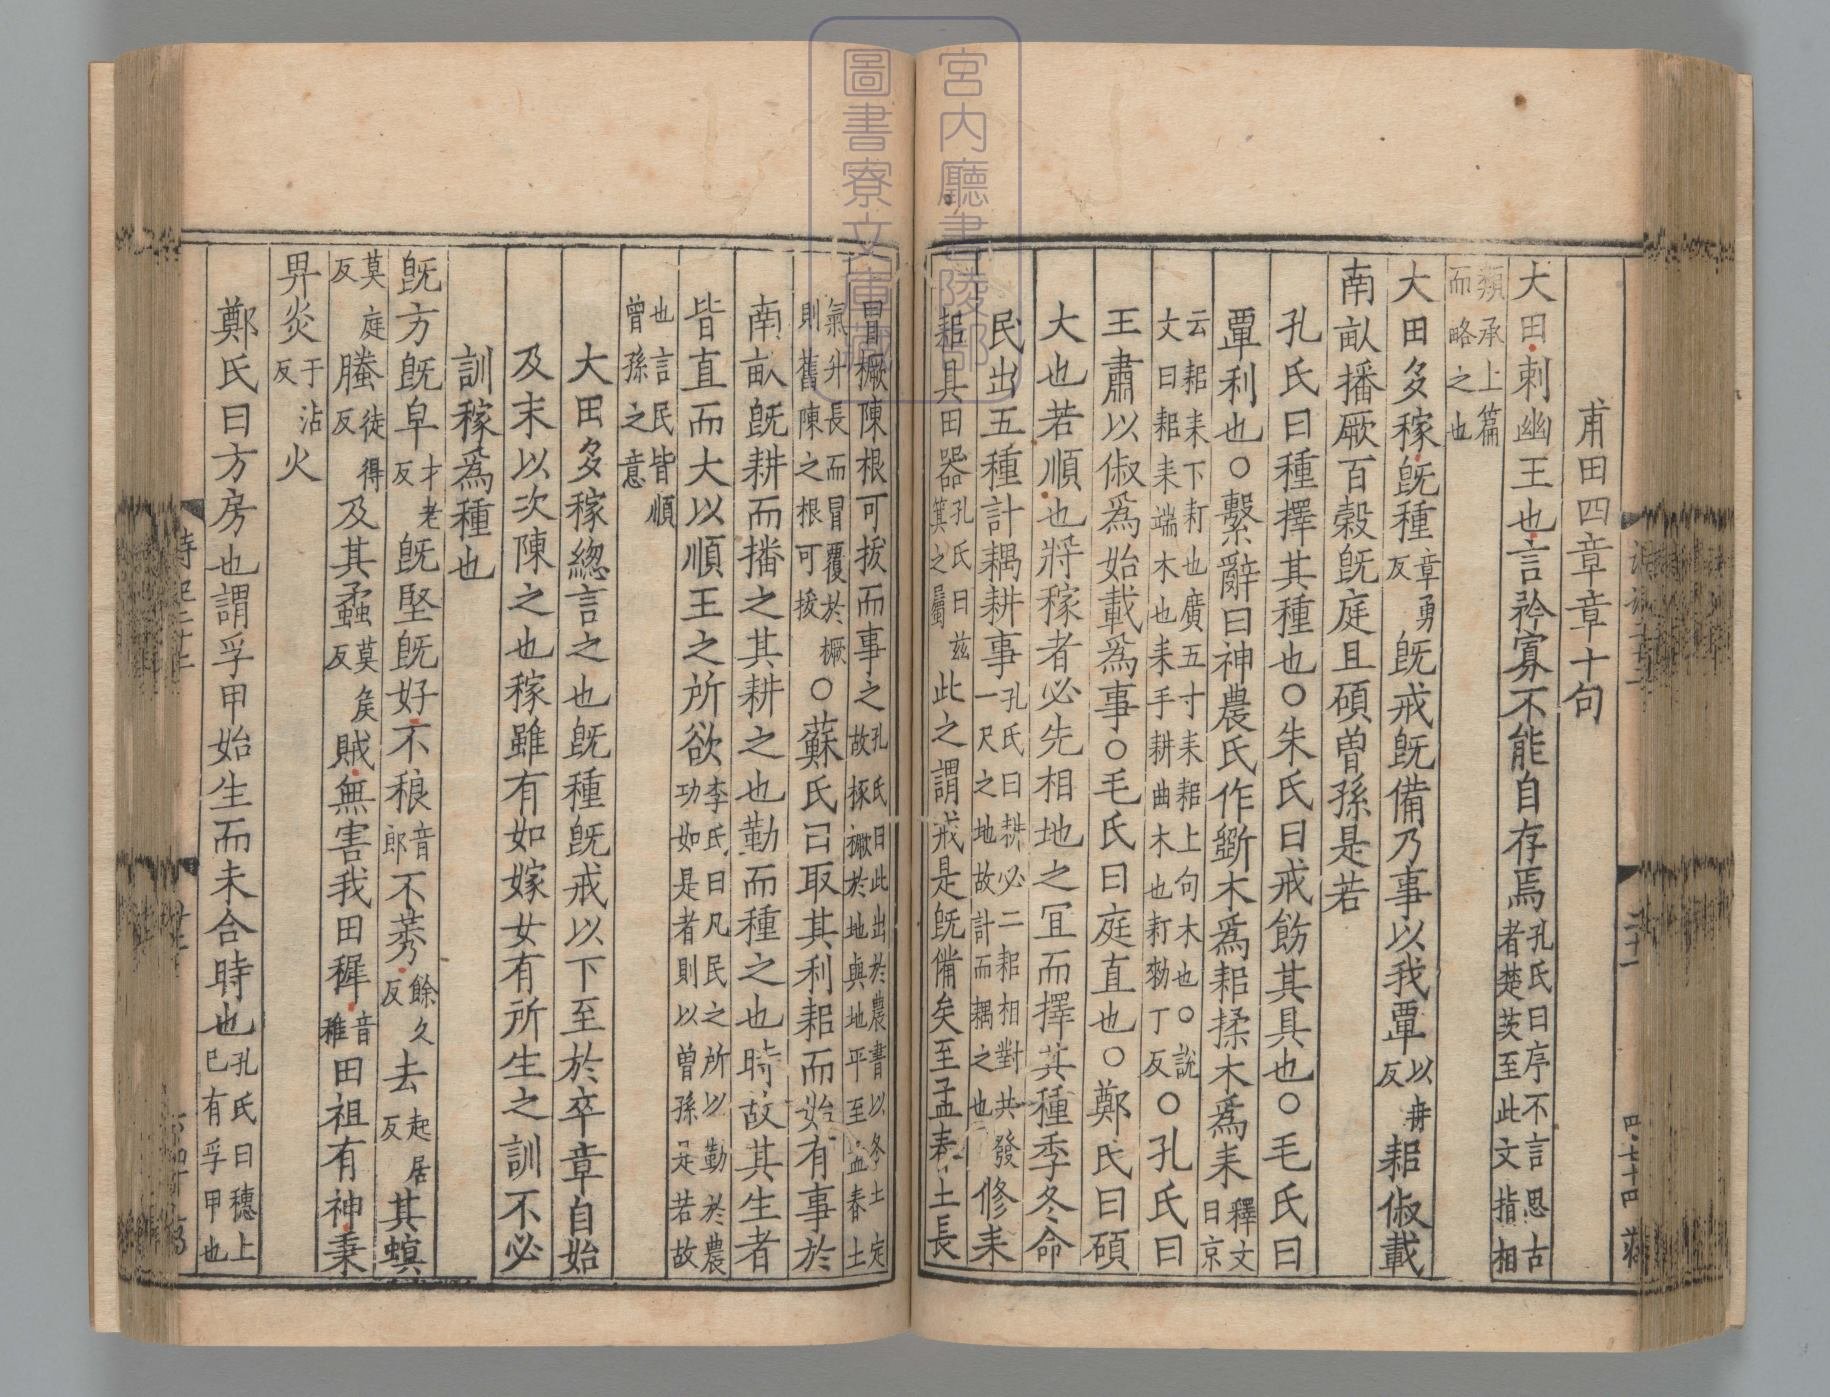 宮内廳書陵部
圖書寮文庫蔵
甫田四章章十句
大田刺幽王也言矜寡不能自存焉孔氏曰序不言思古者楚茨至此文指相
類承上篇而略之也
大田多稼旣種章勇反旣戒旣備乃事以我覃以冉反耜俶載
南畝播厥百穀旣庭且碩曾孫是若
孔氏曰種擇其種也○朱氏曰戒飭其具也○毛氏曰
覃利也○繫辭曰神農氏作斵木爲耜揉木爲耒釋文曰京
云耜耒下耓也廣五寸耒耜上句木也○說文曰耜耒端木也耒手耕曲木也耓勑丁反○孔氏曰
王肅以俶爲始載爲事○毛氏曰庭直也○鄭氏曰碩
大也若順也將稼者必先相地之宜而擇其種季冬命
民出五種計耦耕事孔氏曰耕必二耜相對共發一尺之地故計而耦之也修耒
耜具田器孔氏曰茲箕之屬此之謂戒是旣備矣至孟春土長
冒橛陳根可拔而事之孔氏曰此出於農書以冬土定故椓橛於地與地平至孟春土
氣升長而冒覆於橛則舊陳之根可拔○蘇氏曰取其利耜而始有事於
南畝旣耕而播之其耕之也勤而種之也時故其生者
皆直而大以順王之所欲李氏曰凡民之所以勤於農功如是者則以曾孫是若故
也言民皆順曾孫之意
大田多稼緫言之也旣種旣戒以下至於卒章自始
及末以次陳之也稼雖有如嫁女有所生之訓不必
訓稼爲種也
旣方旣皁才老反旣堅旣好不稂音郎不莠餘久反去起居反其螟
莫庭反螣徒得反及其蟊莫矦反賊無害我田穉音稚田祖有神秉
畀炎于沾反火
鄭氏曰方房也謂孚甲始生而未合時也孔氏曰穗上已有孚甲也